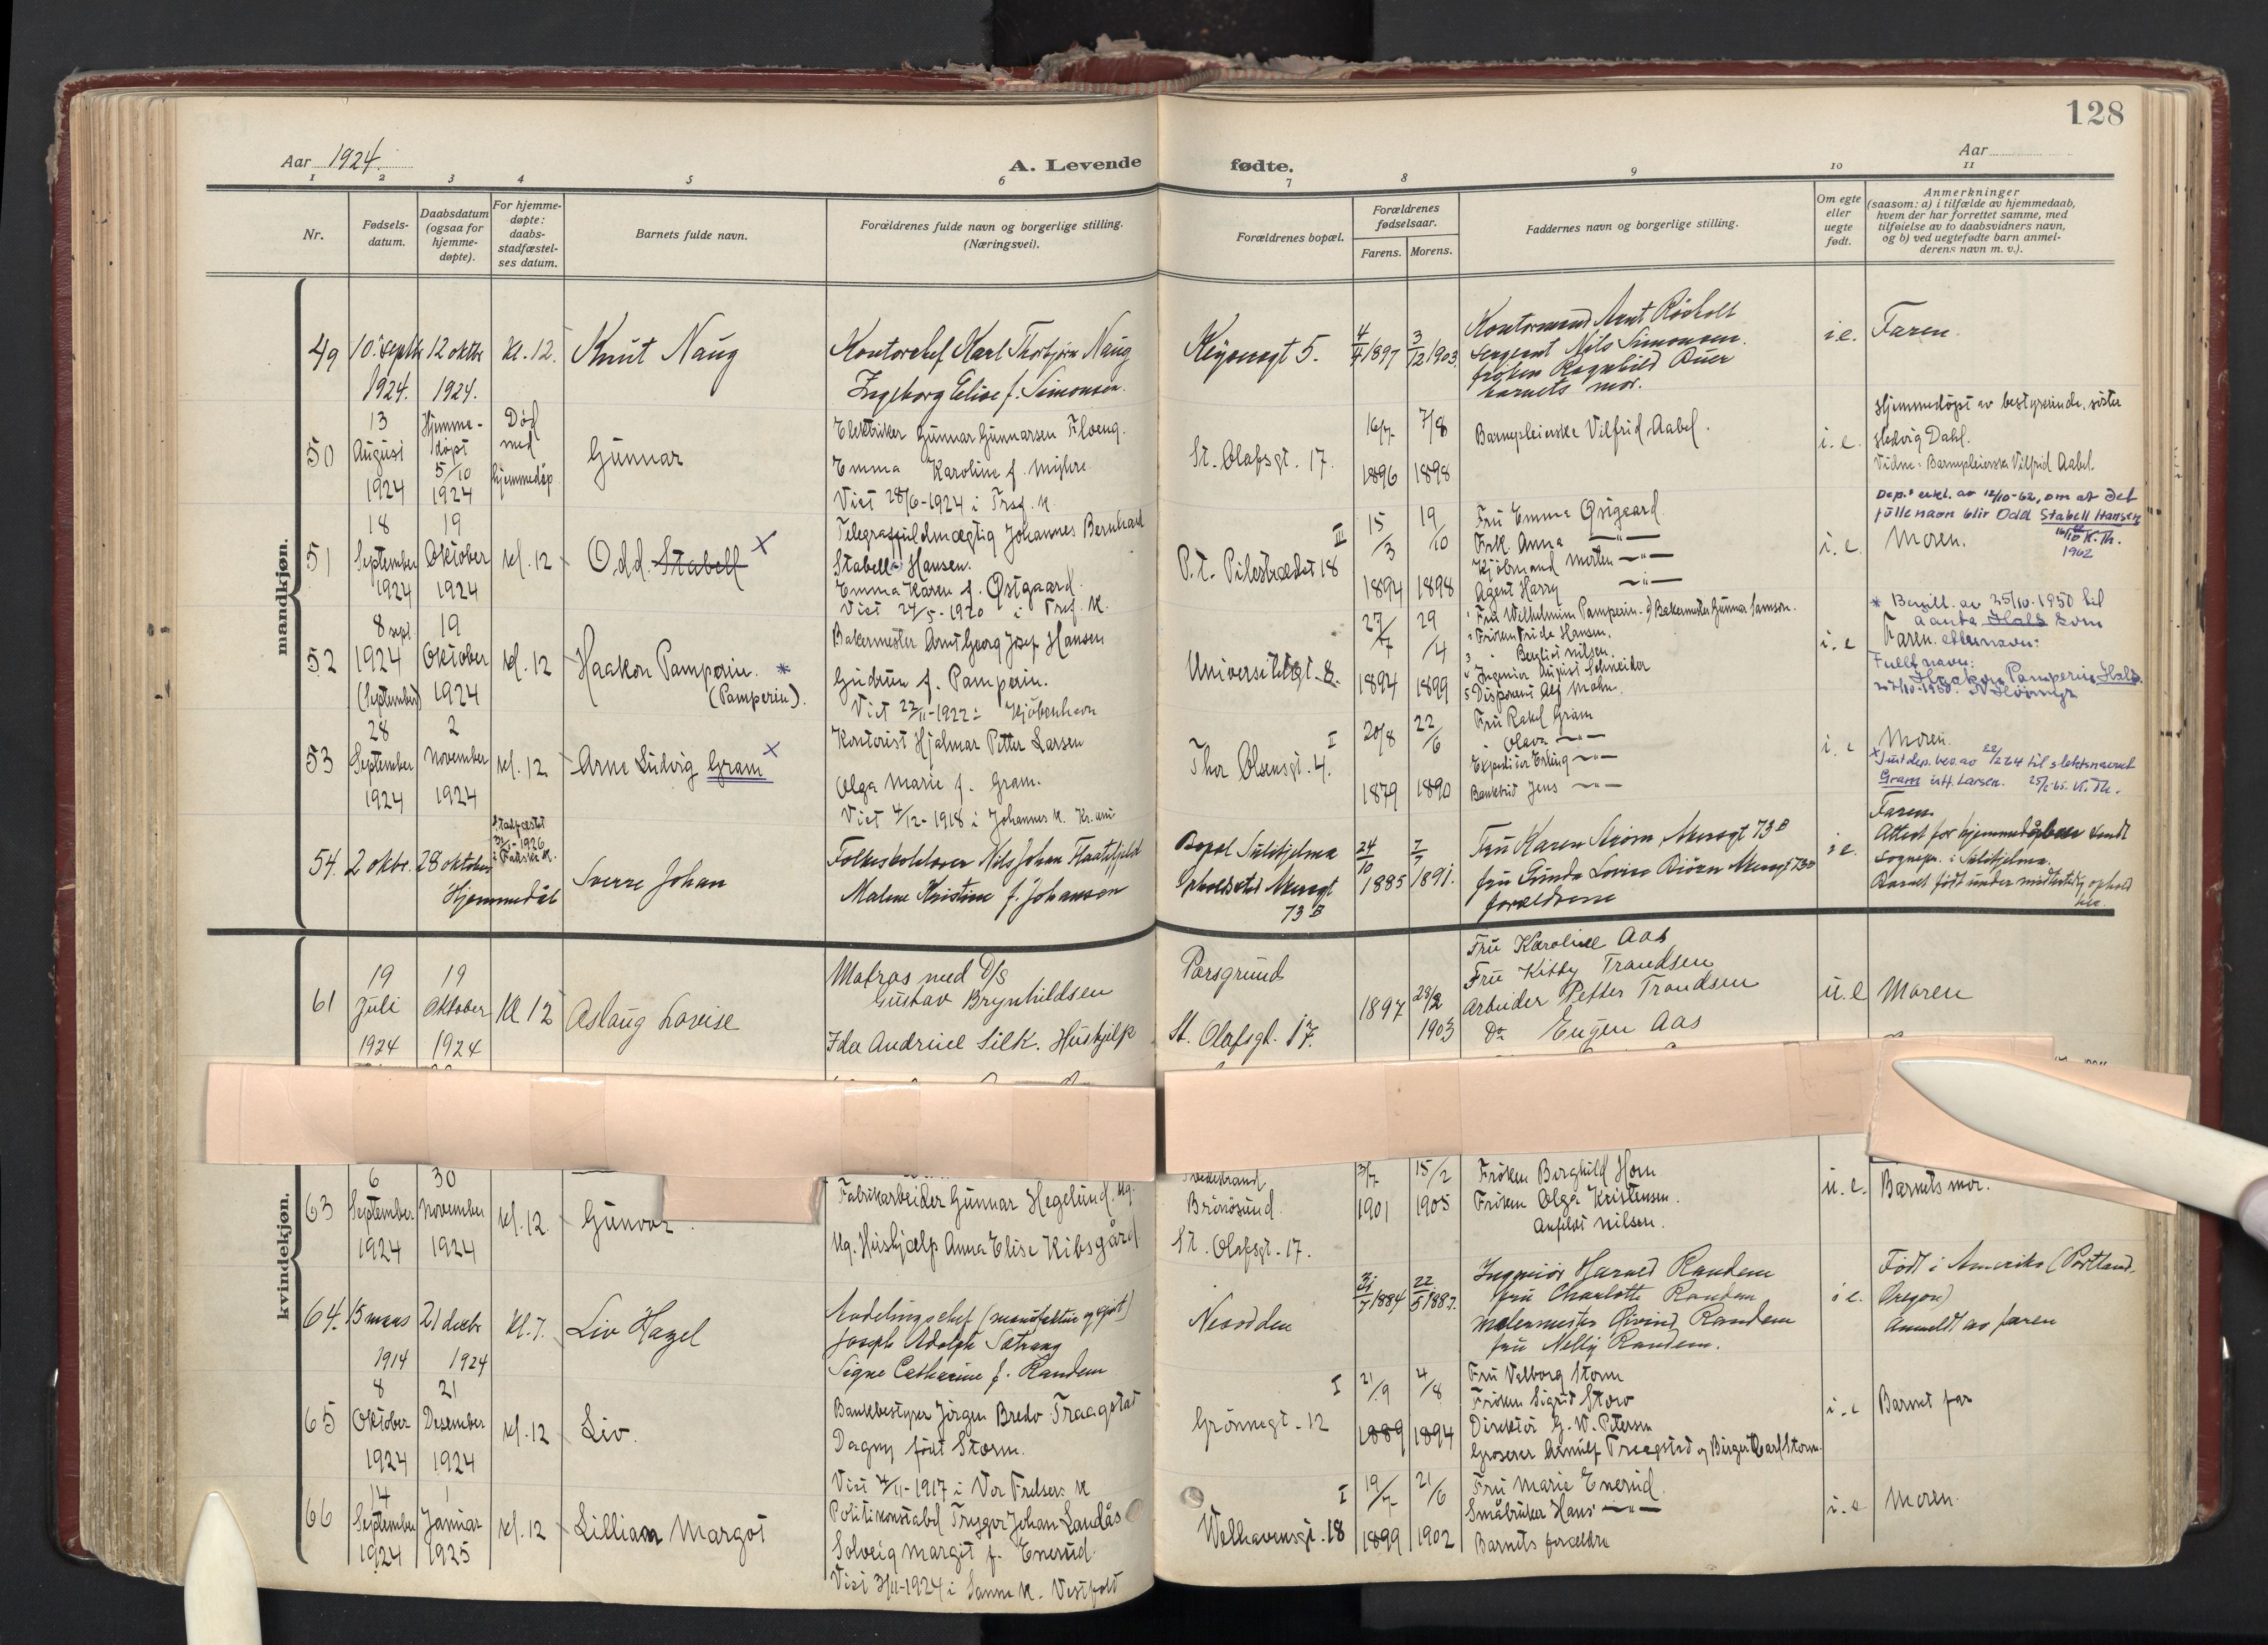 128
Aar 1924.
A. Levende
fødte.
Aar
1 2 3 4 5 6 7 8 9 10 11
Nr.
Fødsels-
datum.
Daabsdatum
(ogsaa for
hjemme-
døpte).
For hjemme-
døpte:
daabs-
stadfæstel-
ses datum.
Barnets fulde navn.
Forældrenes fulde navn og borgerlige stilling.
(Næringsvei).
Forældrenes bopæl.
Forældrenes
fødselsaar.
Farens. Morens.
Faddernes navn og borgerlige stilling.
Om egte
eller
uegte
født.
Anmerkninger
(saasom: a) i tilfælde av hjemmedaab,
hvem der har forrettet samme, med
tilføielse av to daabsvidners navn,
og b) ved uegtefødte barn anmel-
derens navn m. v.).
mandkjøn.
49
10. septbr
1924.
12 oktbr
1924.
kl. 12.
Knut Naug
Kontorchef Karl Thorbjørn Naug
Ingeborg Elise f. Simonsen.
5.
4/4 1897
3/12 1903
Sergeant Nils Simonsen.
frøken Ragnhild
barnets mor.
i e.
Faren.
50
13
August
1924
Hjemme-
døpt
5/10
1924
Død
med
hjemmedøp
Gunnar
Elektriker Gunnar Gunnarsen Floeng.
Emma Karoline f. Myhre.
Viet 28/6-1924 i Tref. k.
St. Olafsgt. 17.
16/7
1896
7/8
1898
Barnepleierske Vilfrid Aabel.
i. e.
Hjemmedøpt av bestyrerinde, søster
Hedvig Dahl.
Vidne: Barnepleierske Vilfrid Aabel.
51
18
September
1924
19
Oktober
1924
kl. 12
Odd Stabell x
Telegraffuldmægtig Johannes Bernhard
Stabell-Hansen.
Emma Karen f. Østgaard.
Viet 24/5-1920 i Tref. k.
III
P.t. Pilestrædet 18
15/3
1894
19/10
1898
Fru Emma Østgaard
Frk. Anna —"—
Kjøbmand Morten —"—
Agent Harry —"—
i. e.
Dep.s erkl. av 12/10-62, om at det
fulle navn blir Odd Stabell Hansen
K. Th.
1962
Moren.
52
8 sept.
1924
(September)
19
Oktober
1924
kl. 12
Haakon Pamperin. *
(Pamperin).
Bakermester Arnt Georg Josef Hansen
Gudrun f. Pamperin.
Viet 22/11-1922 i Kjøbenhavn
Universitetsgt. 8.
27/7
1894
29/4
1899
1 Fru Wilhelmine Pamperin. 6) Bakermester Gunnar Samson.
2 Frøken Frida Hansen.
3 " Bergliot Nilsen.
4 Ingeniør August Schneider
5 Disponent Alf Mohn.
i. e
* Bevill. av 25/10-1950 til
å anta Hals som
Faren. etternavn:
Fullt navn:
Haakon Pamperin Hals.
53
28
September
1924
2
November
1924
kl. 12
Arne Ludvig Gram x
Kontorist Hjalmar Petter Larsen
Olga Marie f. Gram.
Viet 4/12-1918 i Johannes k. Kr.ania
I
Thor Olsensgt. 4.
20/8
1879
22/6
1890
Fru Rakel Gram
" Olava —"—
Expeditør Erling —"—
Bankbud Jens —"—
i. e
Moren.
x Just.dep. bev. av 22/2 64 til slektsnavnet
Gram istf. Larsen.
54.
2 oktbr.
28 oktober
Hjemmedåb
Stadfæstet
1926
Sverre Johan
Folkeskolelærer Nils Johan Flaatefjeld
Malene Kristine f. Johansen
Bopæl Sulitjelma
Opholdsted
73 B
24/10
1885
7/7
1891.
Fru Karen 73 B
fru Gunda Lovise
forældrene
i e.
Faren.
Attest for hjemmedåben sendt
sognepr. i Sulitjelma.
Barnet født under midlertidig ophold
her.
kvindekjøn.
61
19
Juli
1924
19
Oktober
1924
Kl 12
Aslaug Lovise
Matros med D/S
Gustav Brynhildsen
Ida Andrine Silk. Hushjelp
Porsgrund
St. Olafsgt. 17.
1897
28/2
1903
Fru Karoline Aas
Fru Kitty Trandsen
Arbeider Petter Trandsen
Do Eugen Aas
u. e
Moren
63
6
September
1924
30
November
1924
kl. 12.
Gunvor.
Fabrikarbeider Gunnar Hegelund. Ug.
Ug. Hushjælp Anna Elise Kibsgård
Tvedestrand
Brønøsund.
St. Olafsgt. 17.
3/7
1901
15/2
1905
Frøken Borghild Horn
Frøken Olga Kristensen.
Nilsen.
u. e.
Barnets mor.
64.
15 mars
1914
21 decbr
1924
kl. 7.
Liv Hazel
Avdelingschef
Joseph Adolph Sætrang
Signe Catharine f. Randem
Nesodden
31/7 1884
22/5 1887.
Ingeniør Harald Randem
fru Charlotte Randem
Malermester Øivind Randem
fru Nelly Randem.
i e.
Født i Amerika (Portland,
Oregon)
Anmeldt av faren
65
8
Oktober
1924
21
Desember
1924
kl. 12
Liv.
Bankbestyrer Jørgen Bredo Fraagstad
Dagny født Storm.
Viet 4/11-1917 i Vor Frelsers k
I
Grønnegt. 12
21/9
1889
4/8
1894
Fru Valborg Storm
Frøken Sigrid Storm
Direktør G. W. Petersen
Grosserer Arnulf Fraagstad og Birger Carl Storm.
i. e
Barnets far
66
14
September
1924
1
Januar
1925
kl. 12
Lillian Margot
Politikonstabel Trygve Johan Landås
Solveig Margit f. Enerud.
Viet 3/11-1924 i Sanne k. Vestfold
I
Welhavensgt. 18
19/7
1899
21/6
1902
Fru Marie Enerud.
Småbruker Hans —"—
Barnets forældre
i. e
Moren.